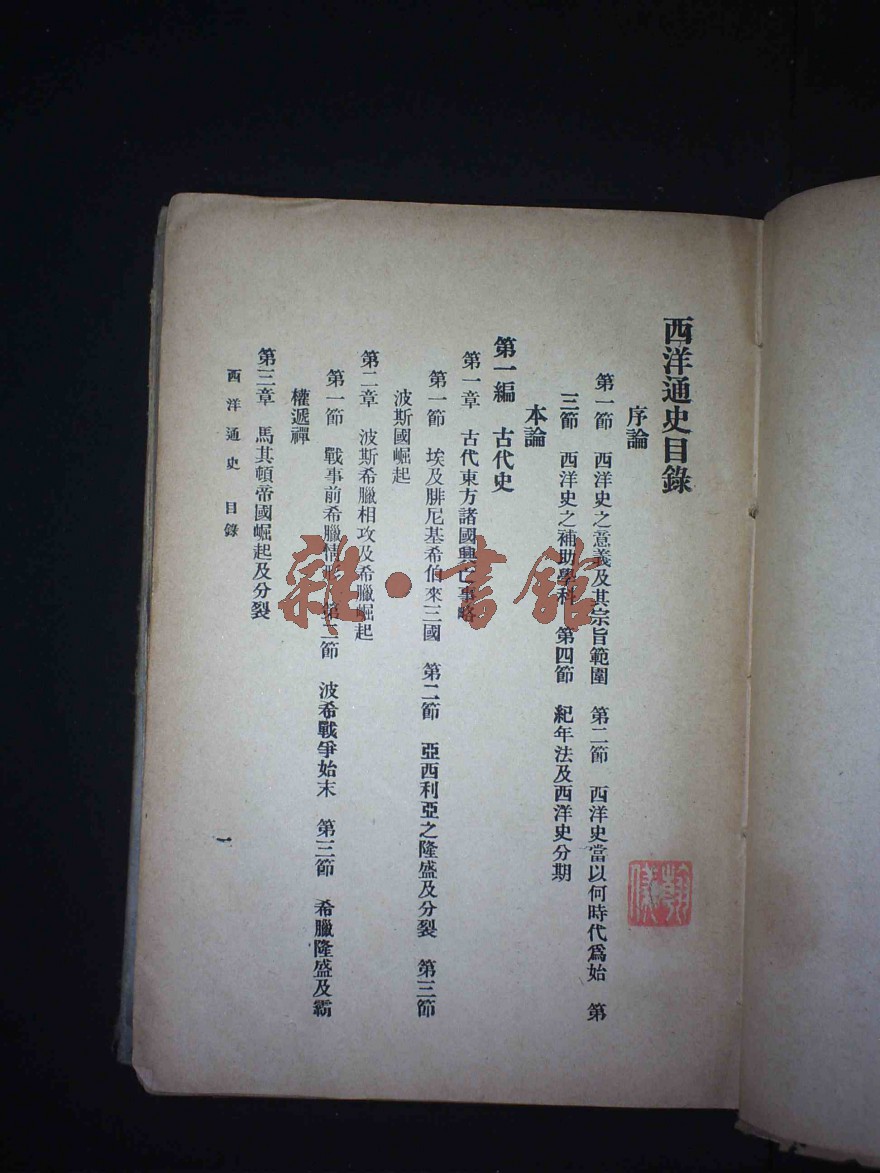 西洋通史目錄
序論
第一節　西洋史之意義及其宗旨範圍　第二節　西洋史當以何時代爲始　第
三節　西洋史之補助學科　第四節　紀年法及西洋史分期
本論
第一編　古代史
第一章　古代東方諸國興亡事略
第一節　埃及腓尼基希伯來三國　第二節　亞西利亞之隆盛及分裂　第三節
波斯國崛起
第二章　波斯希臘相攻及希臘崛起
第一節　戰事前希臘情　第二節　波希戰爭始末　第三節　希臘隆盛及霸
權遞禪
第三章　馬其頓帝國崛起及分裂
西洋通史　目錄
一
雜·書館